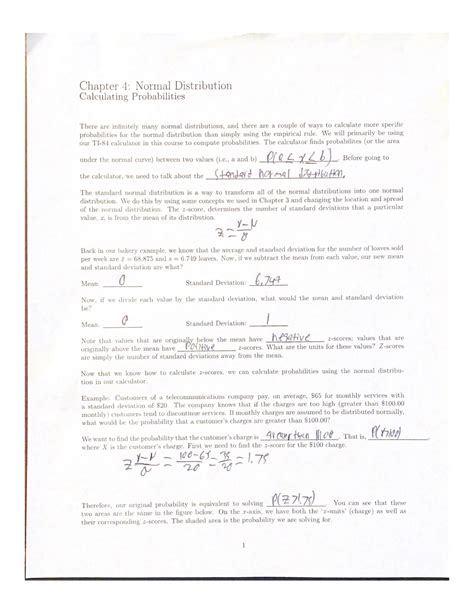 Chapter 4: Normal Distribution
Calculating Probabilities
There are infinitely many normal distributions, and there are a couple of ways to calculate more specific
probabilities for the normal distribution than simply using the empirical rule. We will primarily be using
our TI-84 calculator in this course to compute probabilities. The calculator finds probabilites (or the area
under the normal curve) between two values (i.e., a and b) P(a ≤ x ≤ b). Before going to
the calculator, we need to talk about the Standard normal distribution.
The standard normal distribution is a way to transform all of the normal distributions into one normal
distribution. We do this by using some concepts we used in Chapter 3 and changing the location and spread
of the normal distribution. The z-score, determines the number of standard deviations that a particular
value, x, is from the mean of its distribution.
z = x-μ / σ
Back in our bakery example, we know that the average and standard deviation for the number of loaves sold
per week are x̄ = 68.875 and s = 6.749 loaves. Now, if we subtract the mean from each value, our new mean
and standard deviation are what?
Mean: 0 Standard Deviation: 6.749
Now, if we divide each value by the standard deviation, what would the mean and standard deviation
be?
Mean: 0 Standard Deviation: 1
Note that values that are originally below the mean have negative z-scores; values that are
originally above the mean have Positive z-scores. What are the units for these values? Z-scores
are simply the number of standard deviations away from the mean.
Now that we know how to calculate z-scores, we can calculate probabilities using the normal distribu-
tion in our calculator.
Example: Customers of a telecommunications company pay, on average, $65 for monthly services with
a standard deviation of $20. The company knows that if the charges are too high (greater than $100.00
monthly) customers tend to discontinue services. If monthly charges are assumed to be distributed normally,
what would be the probability that a customer's charges are greater than $100.00?
We want to find the probability that the customer's charge is greater than $100. That is, P(x>100),
where X is the customer's charge. First, we need to find the z-score for the $100 charge.
z = x-μ / σ = 100-65 / 20 = 35 / 20 = 1.75
Therefore, our original probability is equivalent to solving P(Z>1.75). You can see that these
two areas are the same in the figure below. On the x-axis, we have both the 'x-units' (charge) as well as
their corresponding z-scores. The shaded area is the probability we are solving for.
1